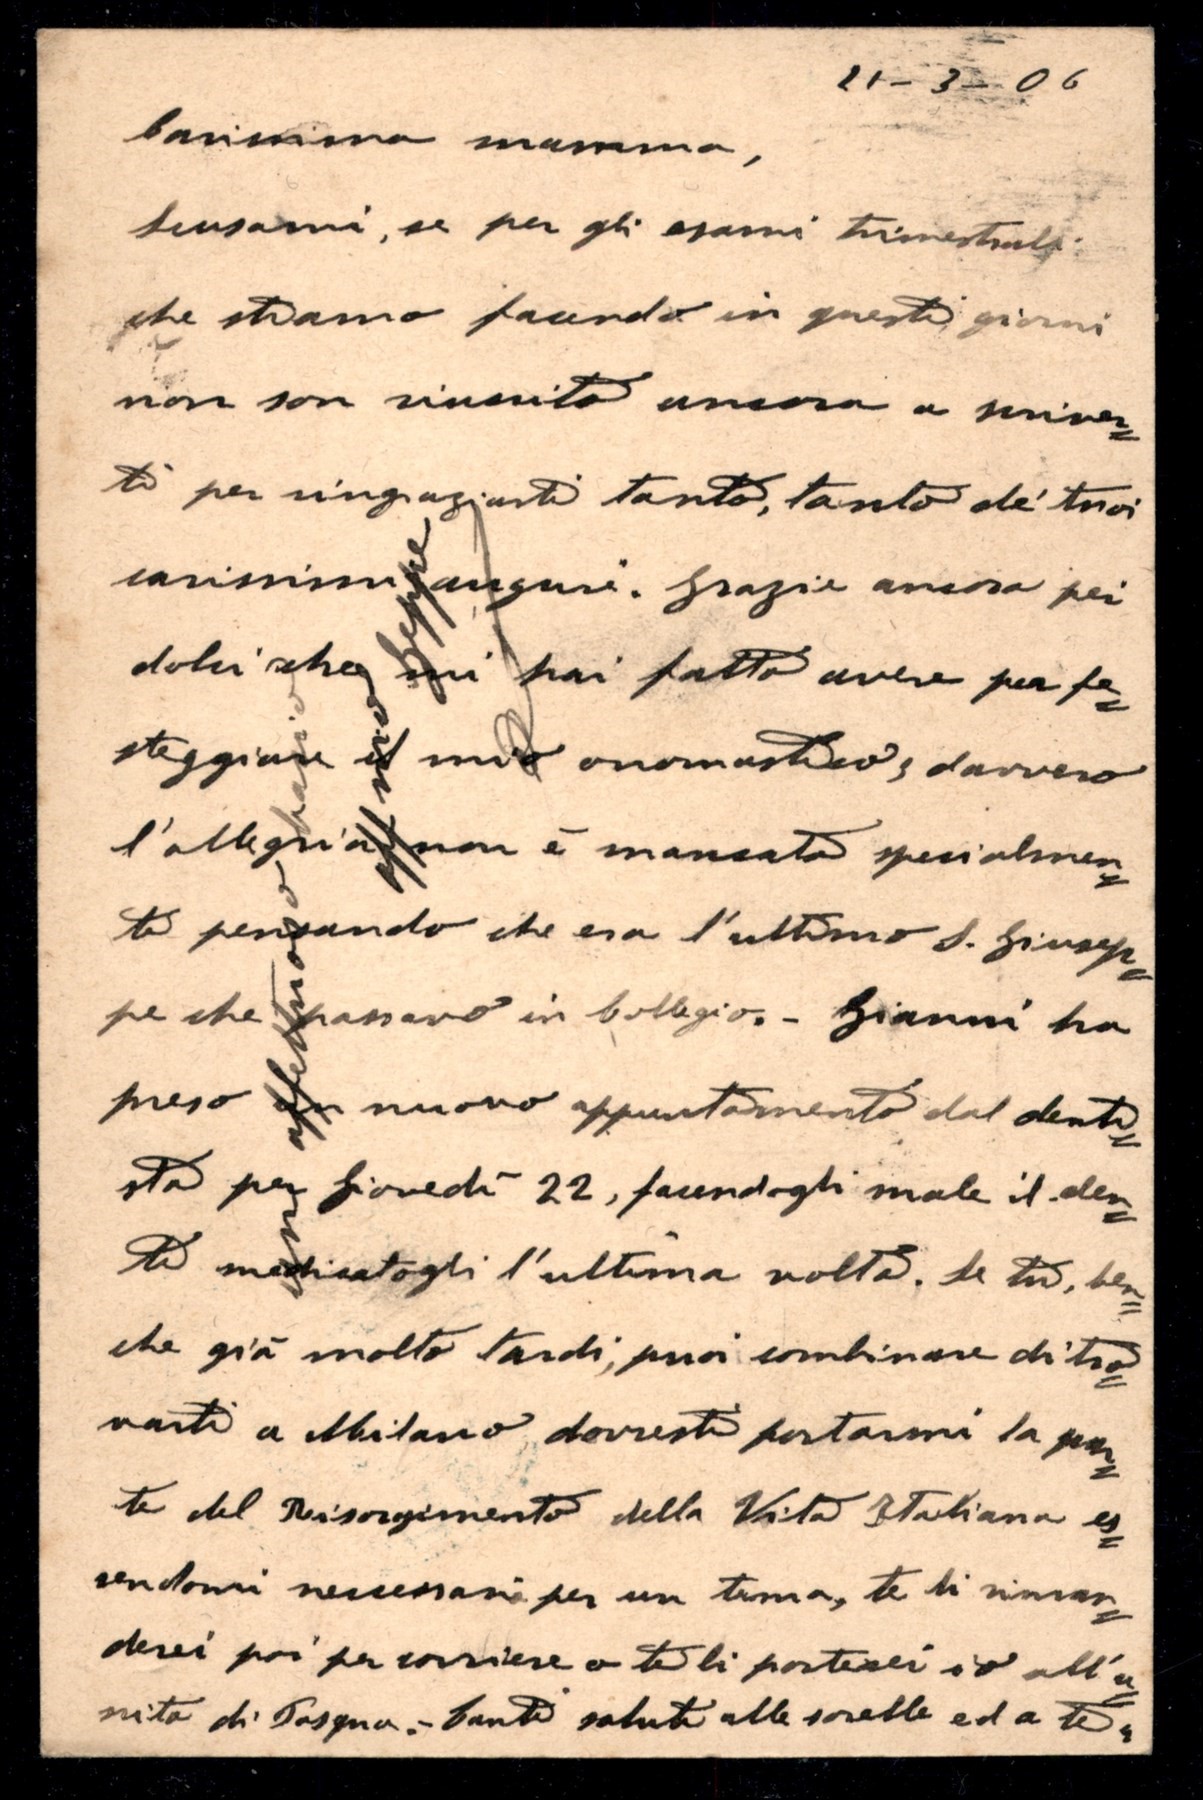 21-3-06
Carissima mamma,
Scusami, se per gli esami trimestrali
che stiamo facendo in questi giorni
non son riuscito ancora a scriver=
ti per ringraziarti tanto, tanto de' tuoi
carissimi auguri. Grazie ancora pei
dolci che mi hai fatto avere per fe=
steggiare il mio onomastico, davvero
l'allegria non è mancata specialmen=
te pensando che era l'ultimo S. Giusep=
pe che passavo in Collegio. - Gianni ha
preso un nuovo appuntamento dal denti=
sta per Giovedì 22, facendogli male il den=
te medicatogli l'ultima volta. Se tu, ben=
che già molto tardi, puoi combinare di tro=
varti a Milano dovresti portarmi la par=
te del Risorgimento della Vita Italiana es=
sendomi necessari per un tema, te li riman=
derei poi per corriere o te li porterei io all'u=
scita di Pasqua. - Tanti saluti alle sorelle ed a te
un affettuoso bacio
aff mio Beppe